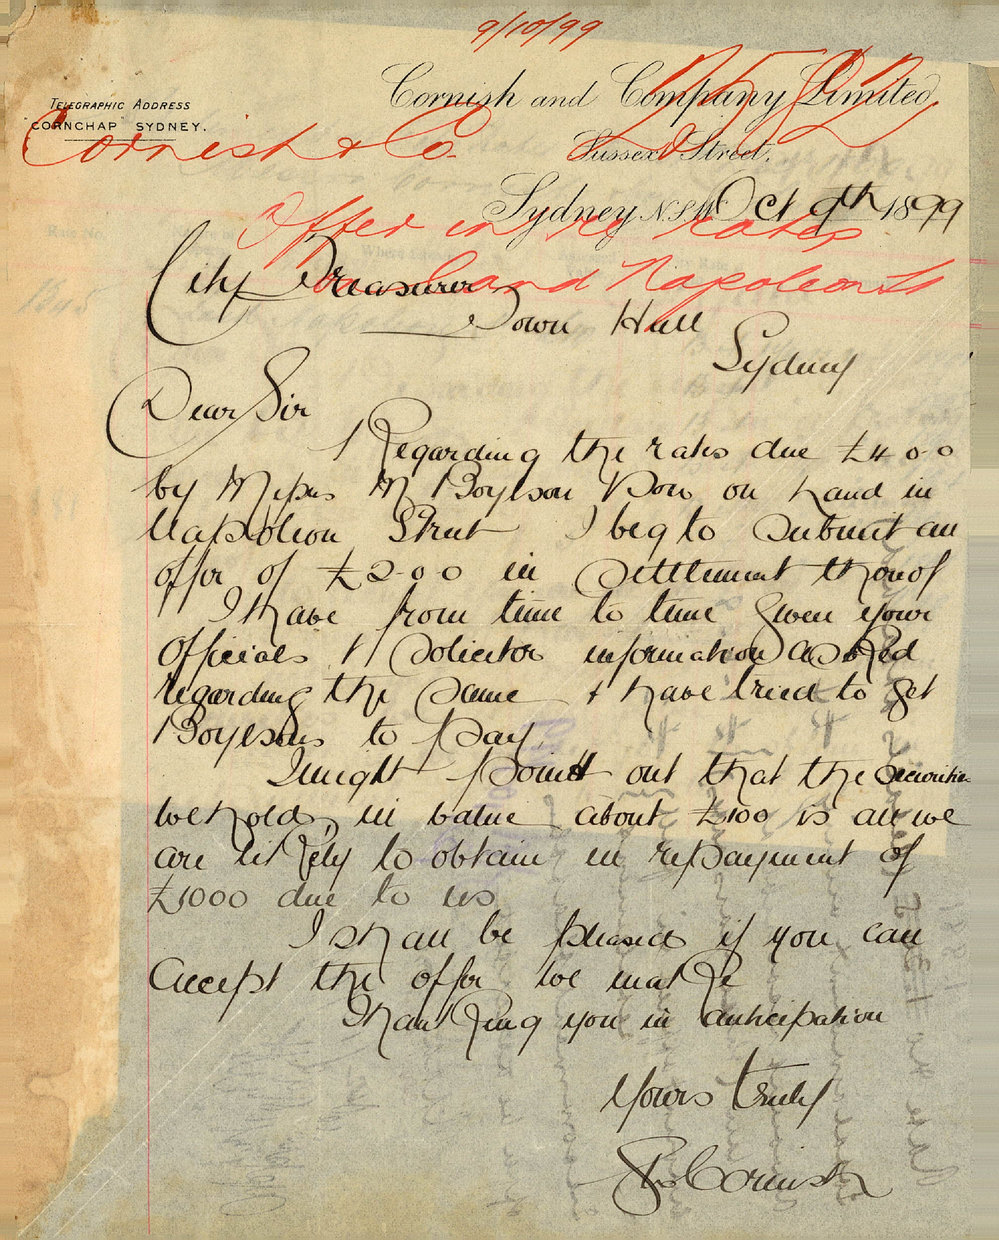 9/10/99
Cornish and Company Limited
TELEGRAPHIC ADDRESS
"CORNCHAP" SYDNEY.
Cornish & Co.
Sussex Street,
Sydney N.S.W. Oct 9th 1899
Offer in re rates
land Napoleon St
City Treasurer
Town Hall
Sydney
Dear Sir
Regarding the rates due £400
by Messrs M Boylson on land in
Napoleon Street I beg to submit an
offer of £200 in settlement thereof
I have from time to time given your
officials & solicitor information asked
regarding the same & have tried to get
Boylsons to pay.
I might point out that the securities
we hold, in value about £100 is all we
are likely to obtain in repayment of
£1000 due to us
I shall be pleased if you can
accept the offer we make
Thanking you in anticipation
Yours truly
Cornish